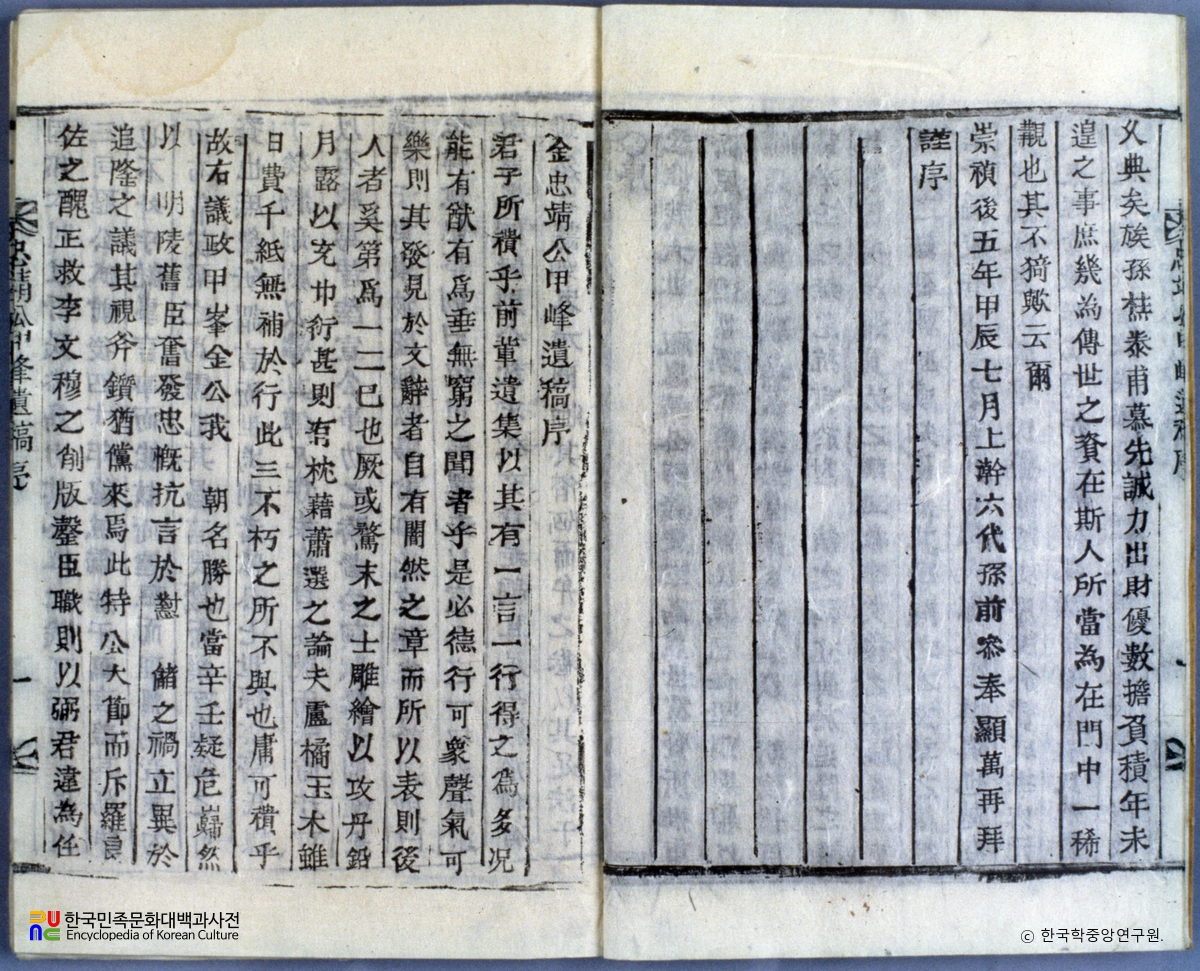 乂典矣族孫桂泰甫慕先誠力出財優數擔負積年未
遑之事庶幾為傳世之資在斯人所當為在門中一稀
觀也其不猗歟云爾
崇禎後五年甲辰七月上澣六代孫前參奉顯萬再拜
謹序
金忠靖公甲峰遺稿序
君子所積乎前軰遺集以其有一言一行得之爲多况
能有猷有爲垂無窮之聞者乎是必德行可衆聲氣可
樂則其發見於文辭者自有闇然之章而所以表則後
人者奚第爲一二已也厥或騖末之士雕繪以攻丹鉛
月露以充巾衍甚則有枕藉蕭選之論夫盧橘玉木雖
日費千紙無補於行此三不朽之所不與也庸可積乎
故右議政甲峯金公我 朝名勝也當辛壬疑危巋然
以 明陵舊臣奮發忠慨抗言於懟 儲之禍立異於
追隆之議其視斧鑕猶儻來焉此特公大節而斥羅良
佐之醜正救李文穆之削版罄臣職則以弼君違為任
忠靖公甲峰遺稿序
한국민족문화대백과사전
Encyclopedia of Korean Culture
ⓒ 한국학중앙연구원.